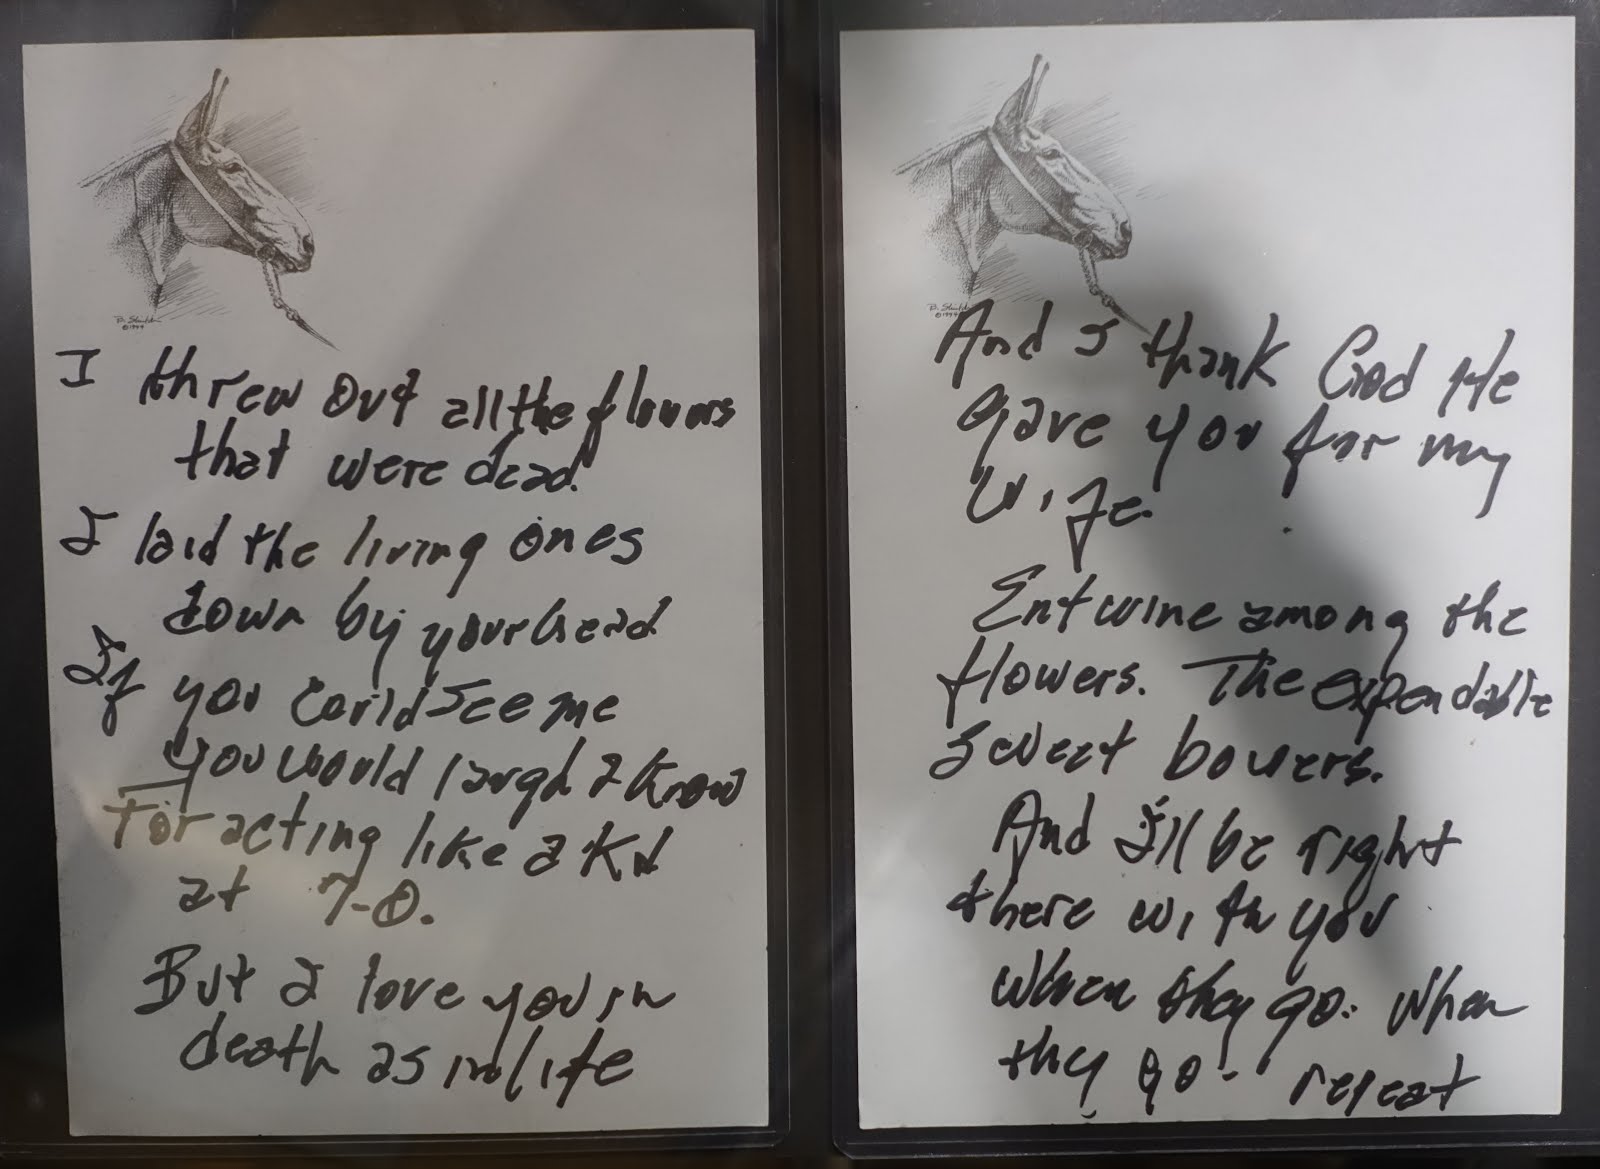 I threw out all the flowers
that were dead.
I laid the living ones
down by your head
If you could see me
you would laugh I know
For acting like a Kid
at 7-0.
But I love you in
death as in life
And I thank God He
gave you for my
wife.
Entwine among the
flowers. The expendable
sweet bowers.
And I'll be right
there with you
when they go. When
they go - repeat
©1994